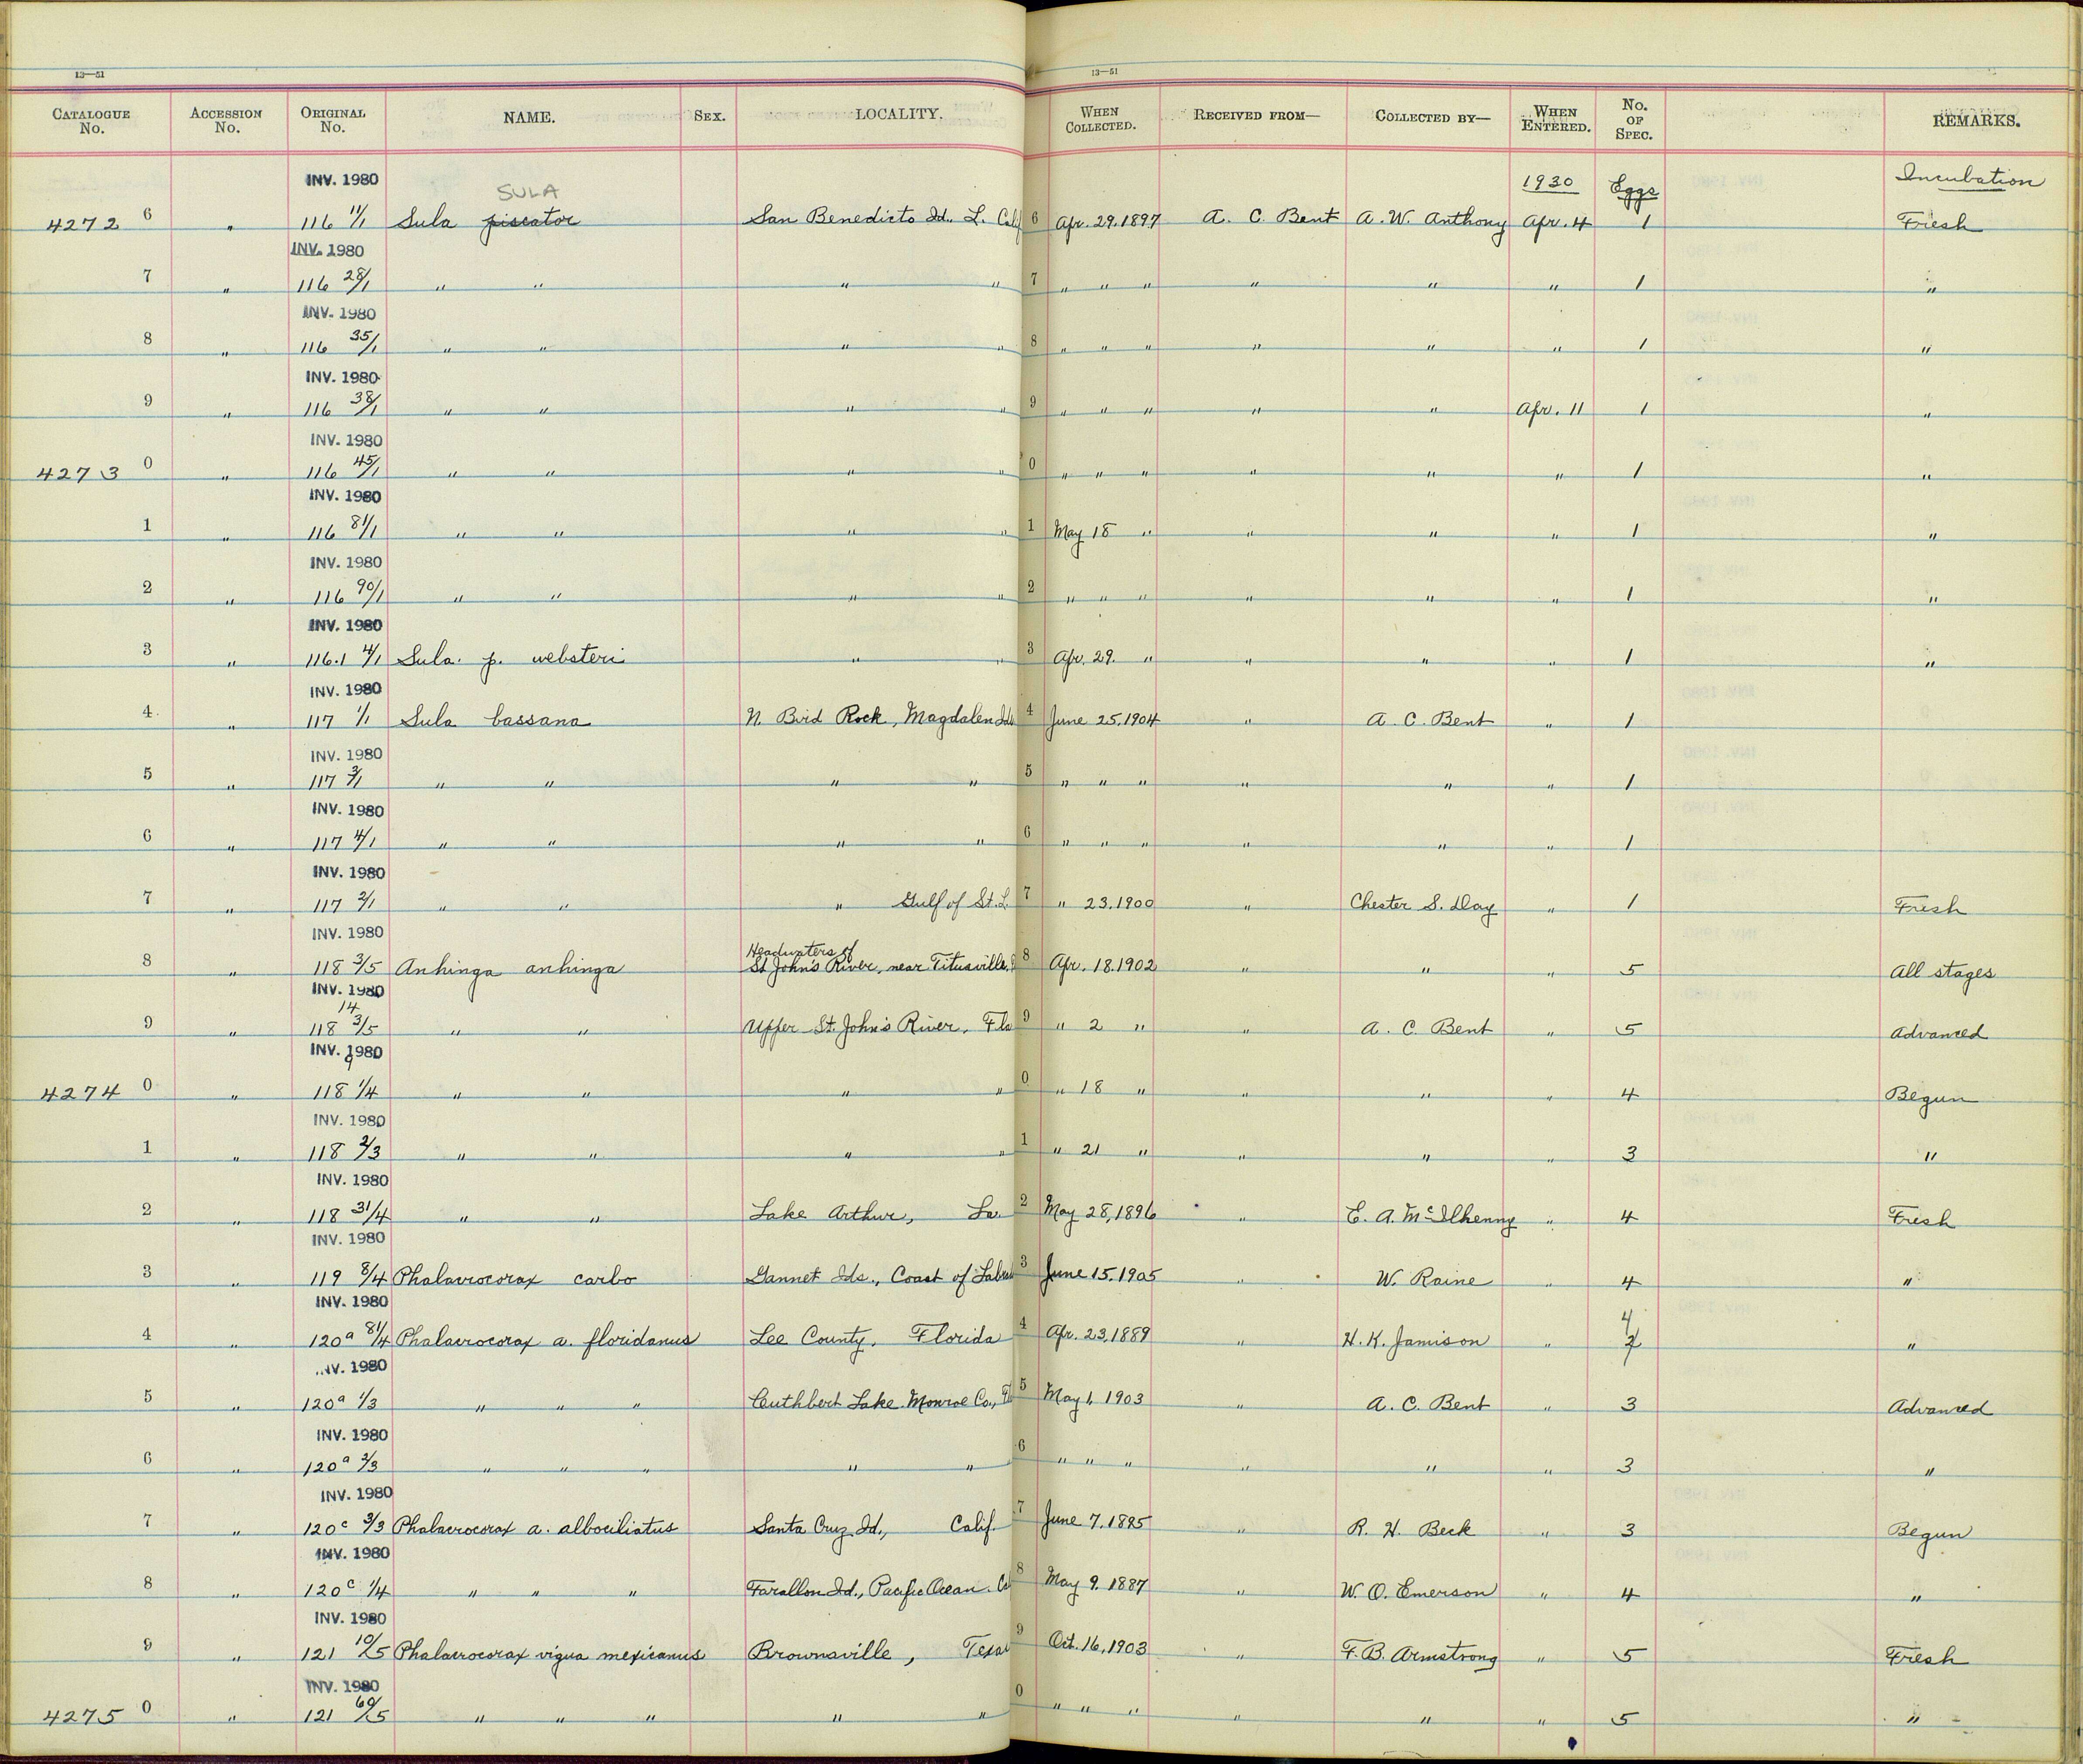 13—51 13—51
CATALOGUE No. ACCESSION No. ORIGINAL No. NAME. SEX. LOCALITY. WHEN COLLECTED. RECEIVED FROM— COLLECTED BY— WHEN ENTERED. No. OF SPEC. REMARKS.
INV. 1980 SULA 1930 Eggs Incubation
4272 6 " 116 11/1 Sula piscator San Benedicto Id. L. Calif 6 Apr. 29. 1897 A. C. Bent A. W. Anthony Apr. 4 1 Fresh
INV. 1980
7 " 116 28/1 " " " " 7 " " " " " " 1 "
INV. 1980
8 " 116 35/1 " " " " 8 " " " " " " 1 "
INV. 1980
9 " 116 38/1 " " " " 9 " " " " " Apr. 11 1 "
INV. 1980
4273 0 " 116 45/1 " " " " 0 " " " " " " 1 "
INV. 1980
1 " 116 81/1 " " " " 1 May 18 " " " " 1 "
INV. 1980
2 " 116 90/1 " " " " 2 " " " " " " 1 "
INV. 1980
3 " 116.1 4/1 Sula. p. websteri " " 3 Apr. 29. " " " " 1 "
INV. 1980
4 " 117 1/1 Sula bassana N. Bird Rock, Magdalen Ids 4 June 25. 1904 " A. C. Bent " 1
INV. 1980
5 " 117 3/1 " " " " 5 " " " " " " 1
INV. 1980
6 " 117 4/1 " " " " 6 " " " " " " 1
INV. 1980
7 " 117 2/1 " " " Gulf of St. L. 7 " 23. 1900 " Chester S. Day " 1 Fresh
INV. 1980
Headwaters of
8 " 118 3/5 Anhinga anhinga St John's River, near Titusville. 8 Apr. 18. 1902 " " " 5 All stages
INV. 1980
14
9 " 118 3/5 " " Upper St. John's River. Fla 9 " 2 " " A. C. Bent " 5 Advanced
INV. 1980
4274 0 " 118 1/4 " " " " 0 " 18 " " " " 4 Begun
INV. 1980
1 " 118 2/3 " " " " 1 " 21 " " " " 3 "
INV. 1980
2 " 118 31/4 " " Lake Arthur, La. 2 May 28, 1896 " E. A. McIlhenny " 4 Fresh
INV. 1980
3 " 119 8/4 Phalacrocorax carbo Gannet Ids., Coast of Labra 3 June 15. 1905 " W. Raine " 4 "
INV. 1980 4
4 " 120a 81/4 Phalacrocorax a. floridanus Lee County. Florida 4 Apr. 23, 1889 " H. K. Jamison " "
INV. 1980
5 " 120a 1/3 " " " Cuthbert Lake. Monroe Co., Fla 5 May 1, 1903 " A. C. Bent " 3 Advanced
INV. 1980
6 " 120a 2/3 " " " " " 6 " " " " " " 3 "
INV. 1980
7 " 120c 3/3 Phalacrocorax a. albociliatus Santa Cruz Id., Calif. 7 June 7, 1895 " R. H. Beck " 3 Begun
INV. 1980
8 " 120c 1/4 " " " Farallon Id., Pacific Ocean. Ca 8 May 9. 1887 " W. O. Emerson " 4 "
INV. 1980
9 " 121 10/5 Phalacrocorax vigua mexicanus Brownsville, Texas 9 Oct. 16, 1903 " F. B. Armstrong " 5 Fresh
INV. 1980
4275 0 " 121 60/5 " " " " " 0 " " " " " " 5 "